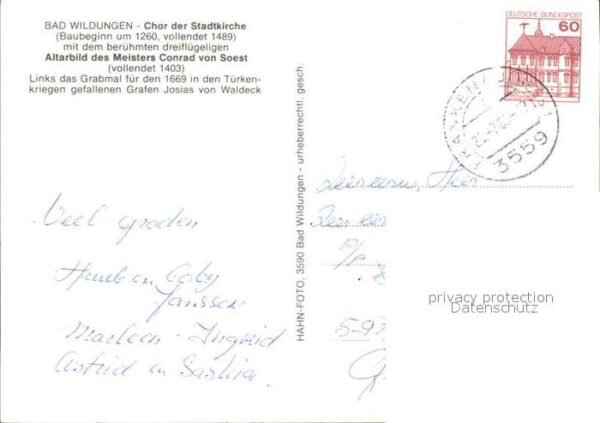 BAD WILDUNGEN - Chor der Stadtkirche
(Baubeginn um 1260, vollendet 1489)
mit dem berühmten dreiflügeligen
Altarbild des Meisters Conrad von Soest
(vollendet 1403)
Links das Grabmal für den 1669 in den Türken-
kriegen gefallenen Grafen Josias von Waldeck
Veel groeten
Huub en Gaby
Janssen
Marleen - Ingrid
Astrid en Saskia
HAHN-FOTO, 3590 Bad Wildungen - urheberrechtl. gesch.
DEUTSCHE BUNDESPOST
60
3559
privacy protection
Datenschutz